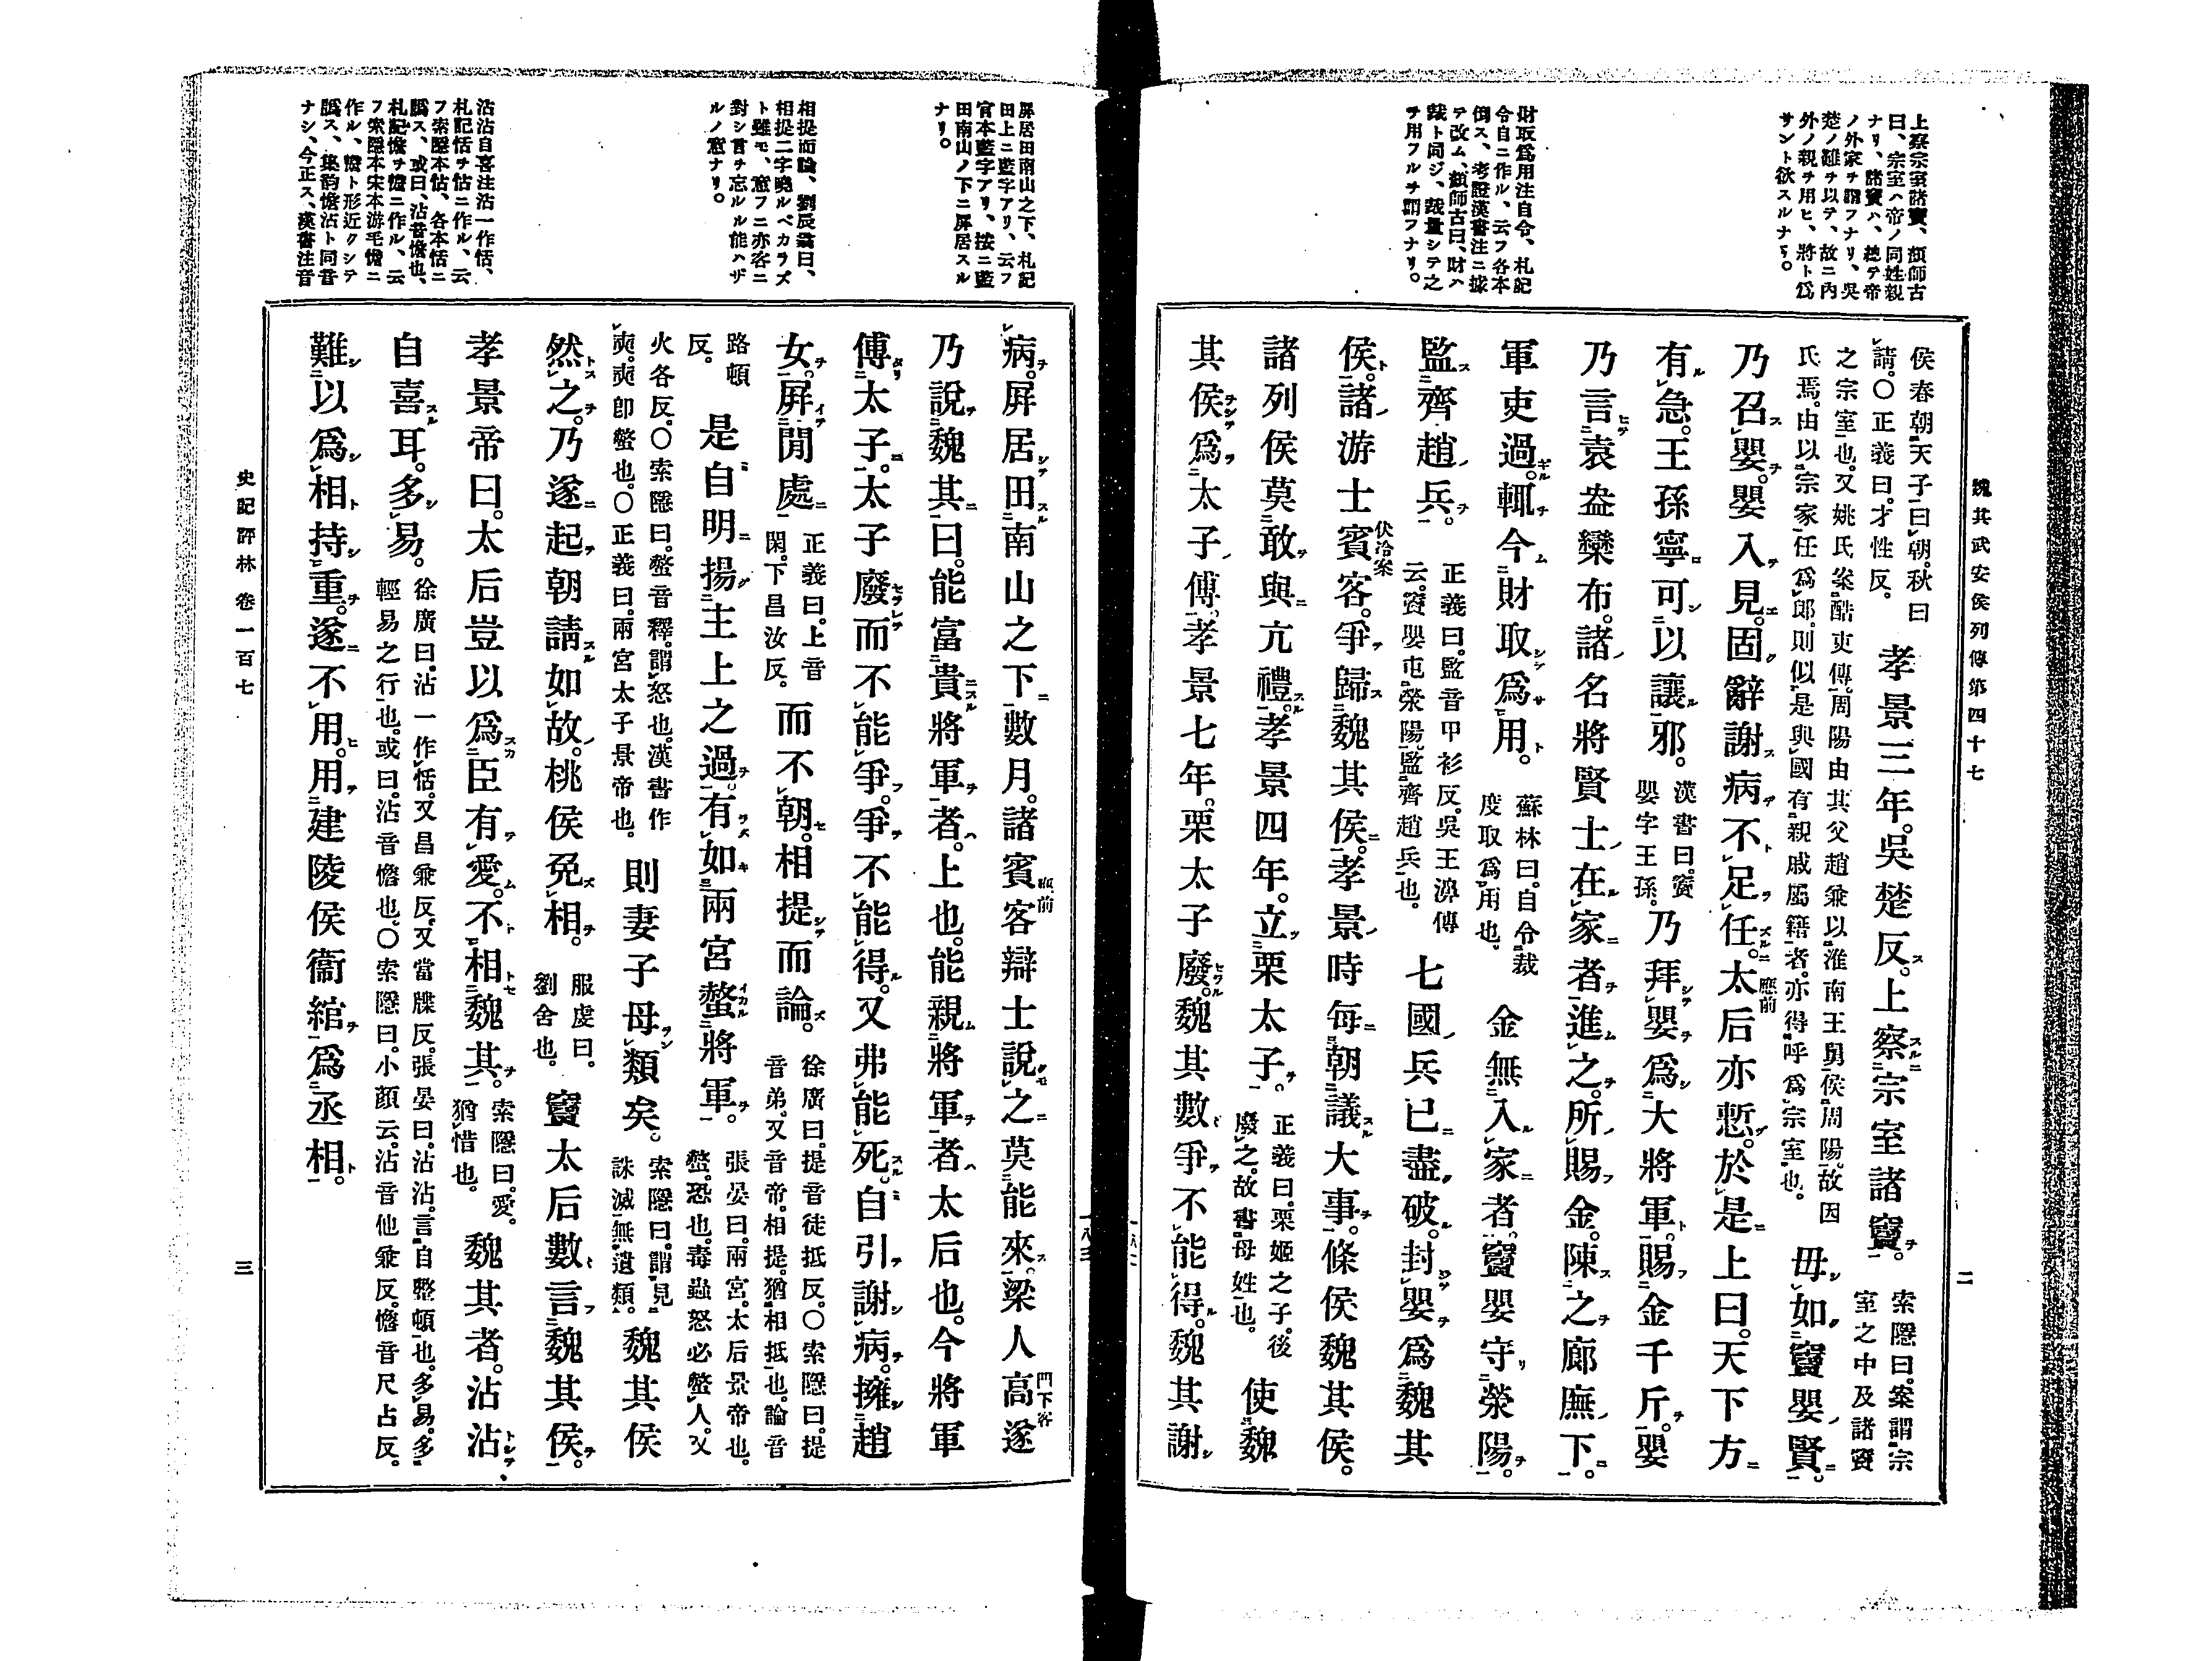 魏其武安侯列傳第四十七
二
上察宗室諸竇、顏師古
曰、宗室ハ帝ノ同姓親
ナリ、諸竇ハ、總テ帝
ノ外家ヲ謂フナリ、吳
楚ノ難ヲ以テ、故ニ內
外ノ親ヲ用ヒ、將ト爲
サント欲スルナリ。
財取爲用注自令、札記
令自ニ作ル、云フ各本
倒ス、考證漢書注ニ據
テ改ム、顏師古曰、財ハ
裁ト同ジ、裁量シテ之
ヲ用フルヲ謂フナリ。
侯春朝天子曰朝。秋曰
請。〇正義曰。才性反。
孝景三年。吳楚反。上察宗室諸竇。
之宗室也。又姚氏案酷吏傳。周陽由其父趙兼以淮南王舅侯周陽。故因
氏焉。由以宗家任爲郎。則似是與國有親戚屬籍者。亦得呼爲宗室也。
毋如竇嬰賢。
索隱曰。案謂宗
室之中及諸竇
乃召嬰。嬰入見。固辭謝病不足任。太后亦慙。於是上曰。天下方
應前
有急。王孫寧可以讓邪。
漢書曰。竇
嬰字王孫。
乃拜嬰爲大將軍。賜金千斤。嬰
乃言袁盎欒布。諸名將賢士在家者進之。所賜金。陳之廊廡下。
軍吏過。輒令財取爲用。
蘇林曰。自令裁
度取爲用也。
金無入家者。竇嬰守滎陽。
監齊趙兵。
正義曰。監音甲衫反。吳王濞傳
云。竇嬰屯滎陽。監齊趙兵也。
七國兵已盡破。封嬰爲魏其
侯。諸游士賓客。爭歸魏其侯。孝景時每朝議大事。條侯魏其侯。
伏冷案
諸列侯莫敢與亢禮。孝景四年。立栗太子。
正義曰。栗姬之子。後
廢之。故書母姓也。
使魏
其侯爲太子傅。孝景七年。栗太子廢。魏其數爭不能得。魏其謝
屏居田南山之下、札記
田上ニ藍字アリ、云フ
官本藍字アリ、按ニ藍
田南山ノ下ニ屏居スル
ナリ。
相提而論、劉辰翁曰、
相提二字曉ルベカラズ
ト雖モ、意フニ亦客ニ
對シ言ヲ忘ルル能ハザ
ルノ意ナリ。
沾沾自喜注沾一作恬、
札記恬ヲ怗ニ作ル、云
フ索隱本怗、各本恬ニ
譌ス、或曰、沾音幨也、
札記幨ヲ襜ニ作ル、云
フ索隱本宋本游毛幨ニ
作ル、襜ト形近クシテ
譌ス、集韵幨沾ト同音
ナシ、今正ス、漢書注音
病。屏居田南山之下數月。諸賓客辯士說之莫能來。梁人高遂
應前
門下客
乃說魏其曰。能富貴將軍者。上也。能親將軍者太后也。今將軍
傅太子。太子廢而不能爭。爭不能得。又弗能死。自引謝病。擁趙
女。屏閒處
正義曰。上音
閑。下昌汝反。
而不朝。相提而論。
徐廣曰。提音徒抵反。〇索隱曰。提
音弟。又音帝。相提。猶相抵也。論音
路頓
反。
是自明揚主上之過。有如兩宮螫將軍。
張晏曰。兩宮。太后景帝也。
螫。恐也。毒蟲怒必螫人。又
火各反。〇索隱曰。螫音釋。謂怒也。漢書作
奭。奭卽螫也。〇正義曰。兩宮太子景帝也。
則妻子母類矣。
索隱曰。謂見
誅滅無遺類。
魏其侯
然之。乃遂起朝請如故。桃侯免相。
服虔曰。
劉舍也。
竇太后數言魏其侯。
孝景帝曰。太后豈以爲臣有愛。不相魏其。
索隱曰。愛。
猶惜也。
魏其者。沾沾
自喜耳。多易。
徐廣曰。沾一作恬。又昌兼反。又當牒反。張晏曰。沾沾。言自整頓也。多易。多
輕易之行也。或曰。沾音幨也。〇索隱曰。小顏云。沾音他兼反。幨音尺占反。
難以爲相持重。遂不用。用建陵侯衞綰爲丞相。
史記評林 卷一百七
三